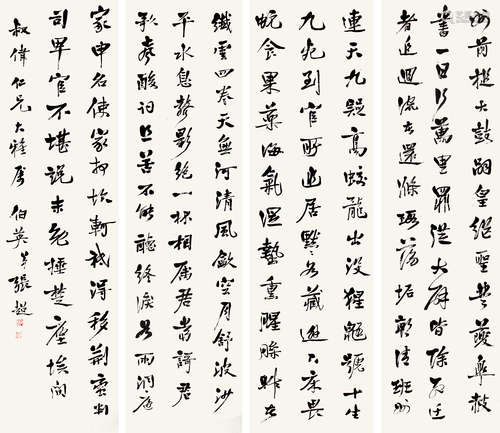 州前捶大鼓嗣皇繼聖登夔皋赦
書一日行萬里罪從大辟皆除死遷
者追迴流者還滌瑕蕩垢朝清班州
連天九疑高蛟龍出沒猩鼯號十生
九死到官所幽居默默如藏逃下床畏
蛇食畏藥海氣濕蟄熏腥臊昨者
纖雲四卷天無河清風吹空月舒波沙
平水息聲影絕一杯相屬君當歌君
歌聲酸詞且苦不能聽終淚如雨洞庭
家申名使家抑坎軻祇得移荊蠻判
司卑官不堪說未免捶楚塵埃間
叔偉仁兄大雅屬 伯英弟張